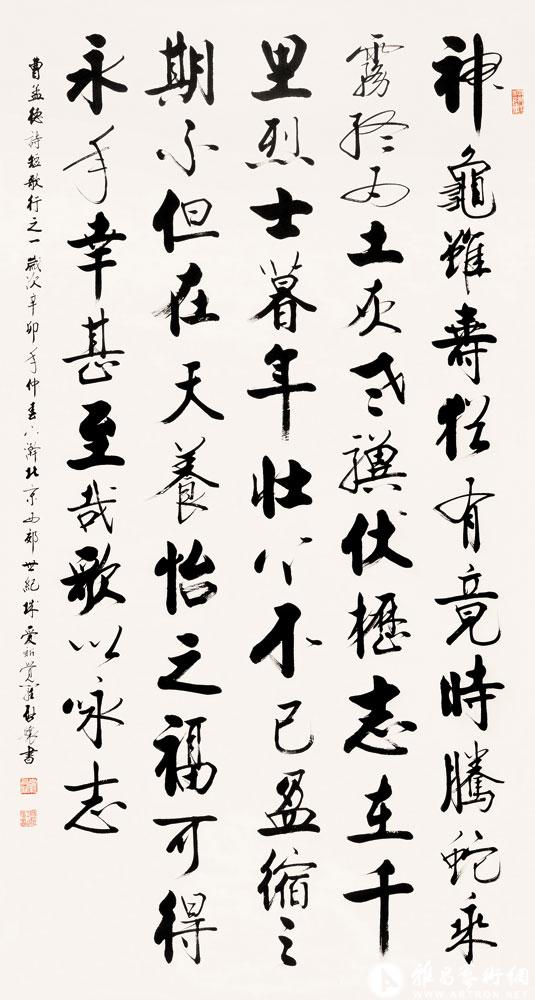 神龜雖壽猶有竟時騰蛇乘
霧終為土灰老驥伏櫪志在千
里烈士暮年壯心不已盈縮之
期不但在天養怡之福可得
永年幸甚至哉歌以咏志
曹孟德詩短歌行之一歲次辛卯年仲春北京西郊世紀城愛新覺羅啟書
雅昌藝術網
WWW.ARTRON.NET